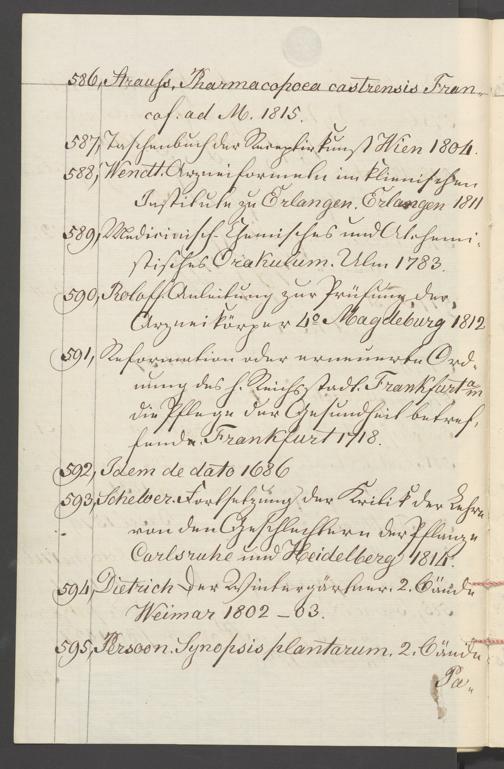 586, Strauss, Pharmacopoea castrensis Fran-
cof: ad M. 1815.
587, Taschenbuch der Receptirkunst Wien 1804.
588, Wendt. Arzneiformeln im klienischen
Institute zu Erlangen. Erlangen 1811
589, Medicinisch. Chemisches und Alchemi-
stisches Orakulum. Ulm 1783.
590, Roloff. Anleitung zur Prüfung der
Arzneikörper 4o Magdeburg 1812
591, Reformation oder erneuerte Ord-
nung des h. Reichsstadt. Frankfurt a/m
die Pflege der Gesundheit betref,
fend. Frankfurt 1718.
592, Idem de dato 1686
593, Schelver. Fortsetzung der Kritik der Lehre
von den Geschlechtern der Pflanze
Carlsruhe und Heidelberg 1814.
594, Dietrich der Wintergärtner. 2. Bände
Weimar 1802 – 03.
595, Persoon. Synopsis plantarum. 2. Bände
Pa-